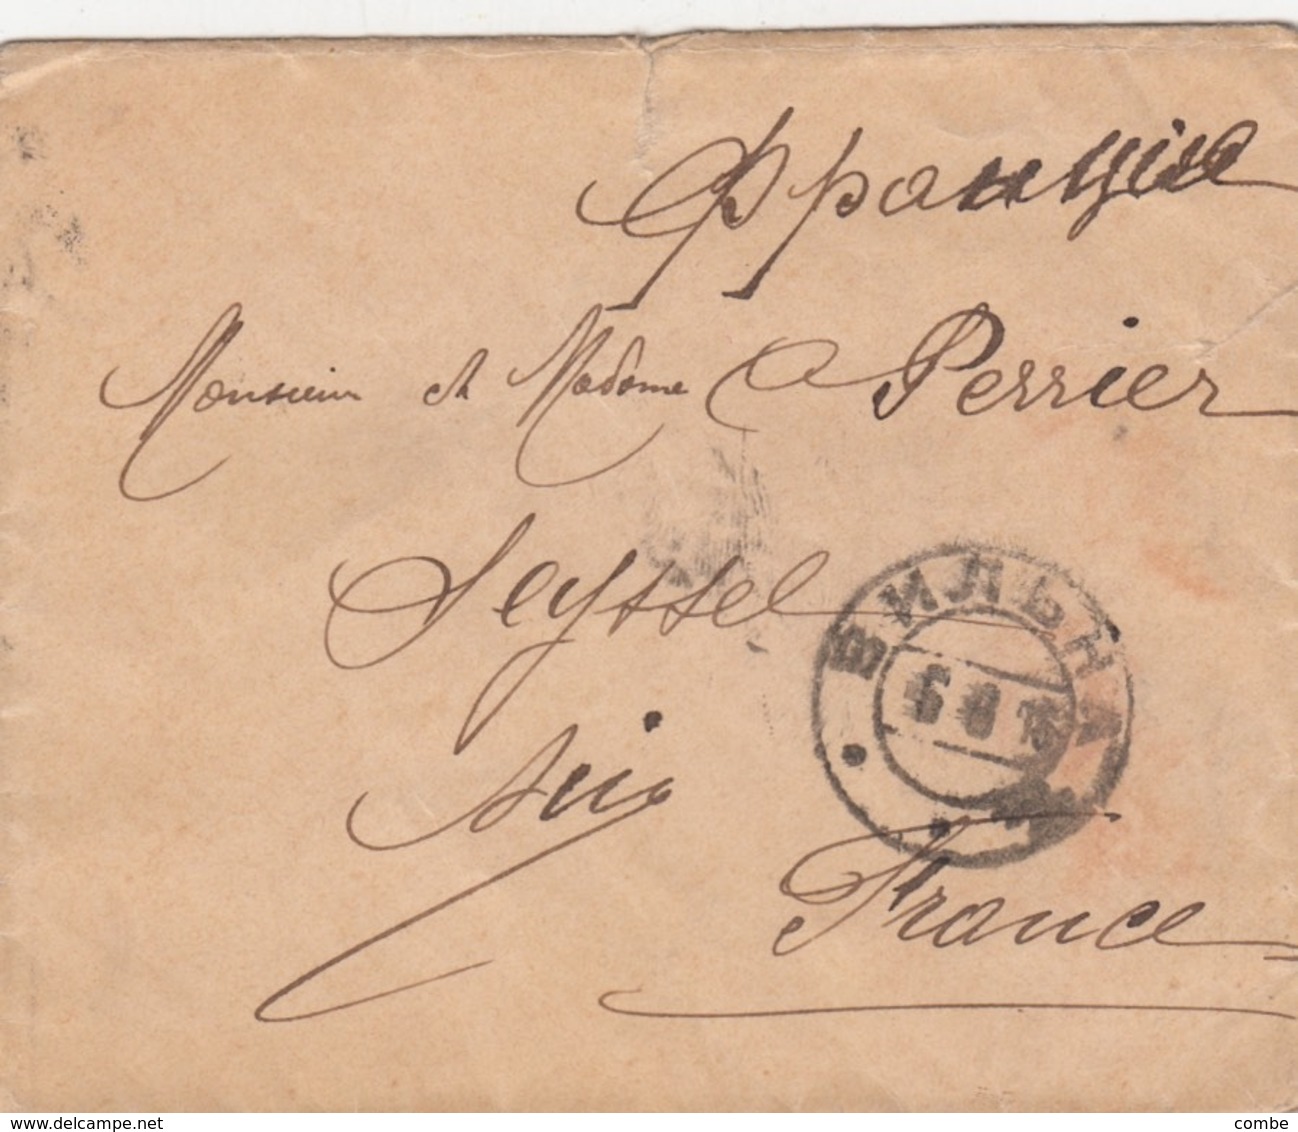 Франція
Monsieur et Madame Perrier
Seyssel
Ain
ВИЛЬНА
France
www.delcampe.net
combe